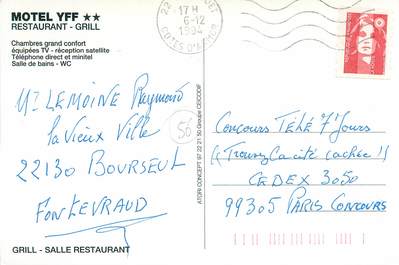 MOTEL YFF ★★
RESTAURANT - GRILL
Chambres grand confort
équipées TV - réception satellite
Téléphone direct et minitel
Salle de bains - WC
Mr LEMOINE Raymond
la Vieux Ville
22130 BOURSEUL
FONTEVRAUD
GRILL - SALLE RESTAURANT
56
ATORI CONCEPT 97 22 21 50 Groupe CECODIF
22
17 H
6-12
1994
COTES D'ARMOR
Concours TÉLÉ 7 Jours
"Trouvez la cité cachée!!
CEDEX 3050
99305 PARIS CONCOURS